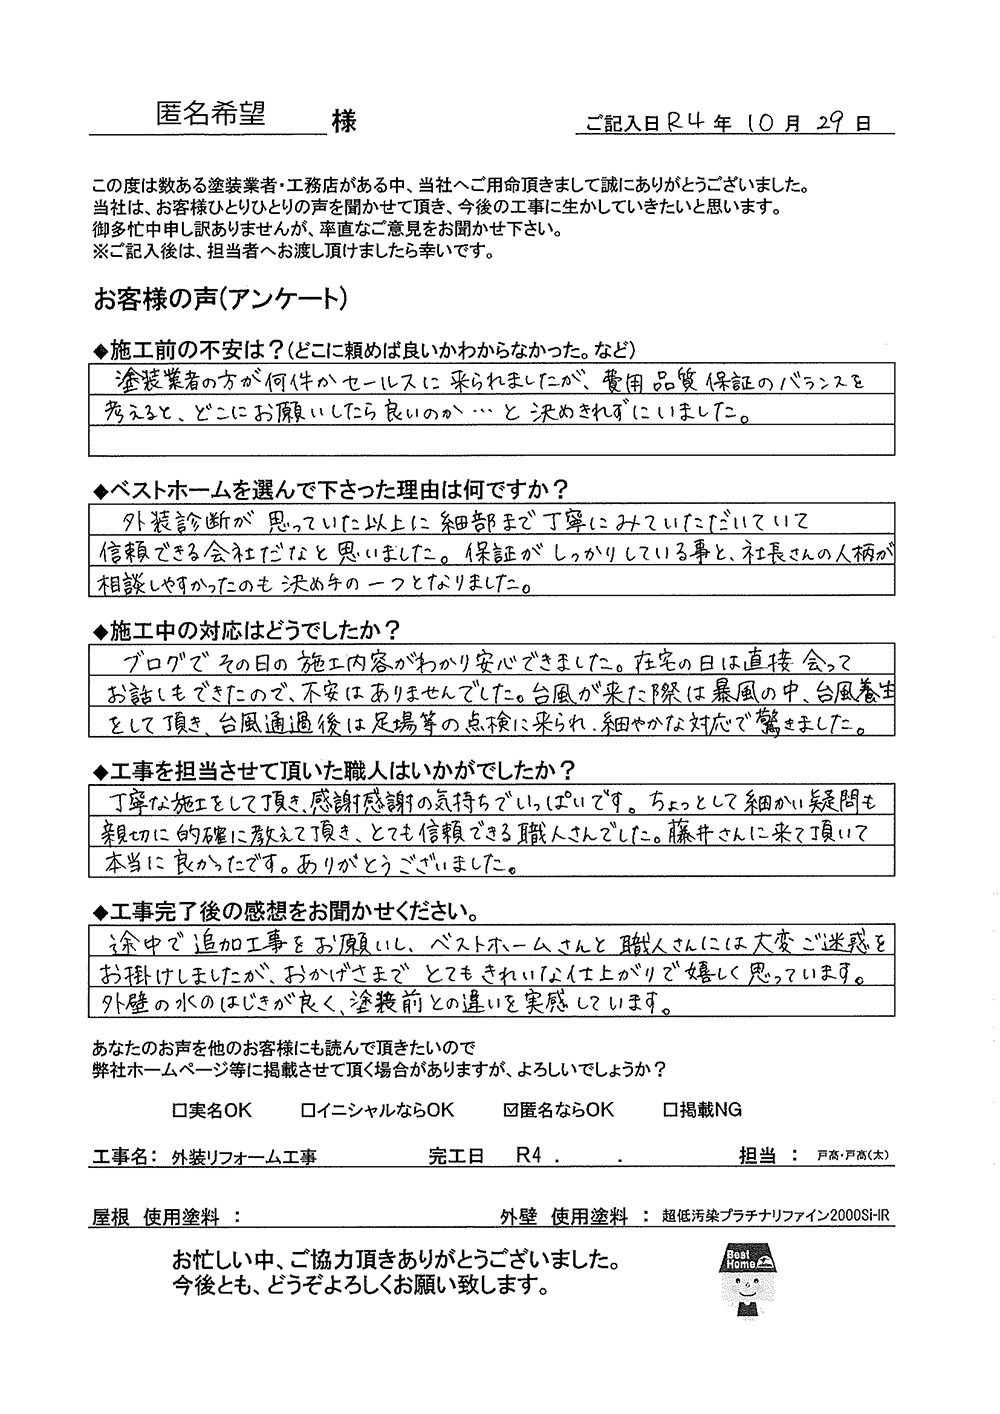 匿名希望 様
ご記入日 R4 年 10 月 29 日
この度は数ある塗装業者・工務店がある中、当社へご用命頂きまして誠にありがとうございました。
当社は、お客様ひとりひとりの声を聞かせて頂き、今後の工事に生かしていきたいと思います。
御多忙中申し訳ありませんが、率直なご意見をお聞かせ下さい。
※ご記入後は、担当者へお渡し頂けましたら幸いです。
お客様の声(アンケート)
◆施工前の不安は?(どこに頼めば良いかわからなかった。など)
塗装業者の方が何件かセールスに来られましたが、費用 品質 保証のバランスを
考えると、どこにお願いしたら良いのか…と決めきれずにいました。
◆ベストホームを選んで下さった理由は何ですか?
外装診断が思っていた以上に細部まで丁寧にみていただいていて
信頼できる会社だなと思いました。保証がしっかりしている事と、社長さんの人柄が
相談しやすかったのも決め手の一つとなりました。
◆施工中の対応はどうでしたか?
ブログでその日の施工内容がわかり安心できました。在宅の日は直接会って
お話しもできたので、不安はありませんでした。台風が来た際は暴風の中、台風養生
をして頂き、台風通過後は足場等の点検に来られ、細やかな対応で驚きました。
◆工事を担当させて頂いた職人はいかがでしたか?
丁寧な施工をして頂き、感謝感謝の気持ちでいっぱいです。ちょっとして細かい疑問も
親切に的確に教えて頂き、とても信頼できる職人さんでした。藤井さんに来て頂いて
本当に良かったです。ありがとうございました。
◆工事完了後の感想をお聞かせください。
途中で追加工事をお願いし、ベストホームさんと職人さんには大変ご迷惑を
お掛けしましたが、おかげさまでとてもきれいな仕上がりで嬉しく思っています。
外壁の水のはじきが良く、塗装前との違いを実感しています。
あなたのお声を他のお客様にも読んで頂きたいので
弊社ホームページ等に掲載させて頂く場合がありますが、よろしいでしょうか?
□実名OK □イニシャルならOK ☑匿名ならOK □掲載NG
工事名: 外装リフォーム工事 完工日 R4 . . 担当 : 戸髙・戸髙(太)
屋根 使用塗料 : 外壁 使用塗料 : 超低汚染プラチナリファイン2000Si-IR
お忙しい中、ご協力頂きありがとうございました。
今後とも、どうぞよろしくお願い致します。
Best
Home